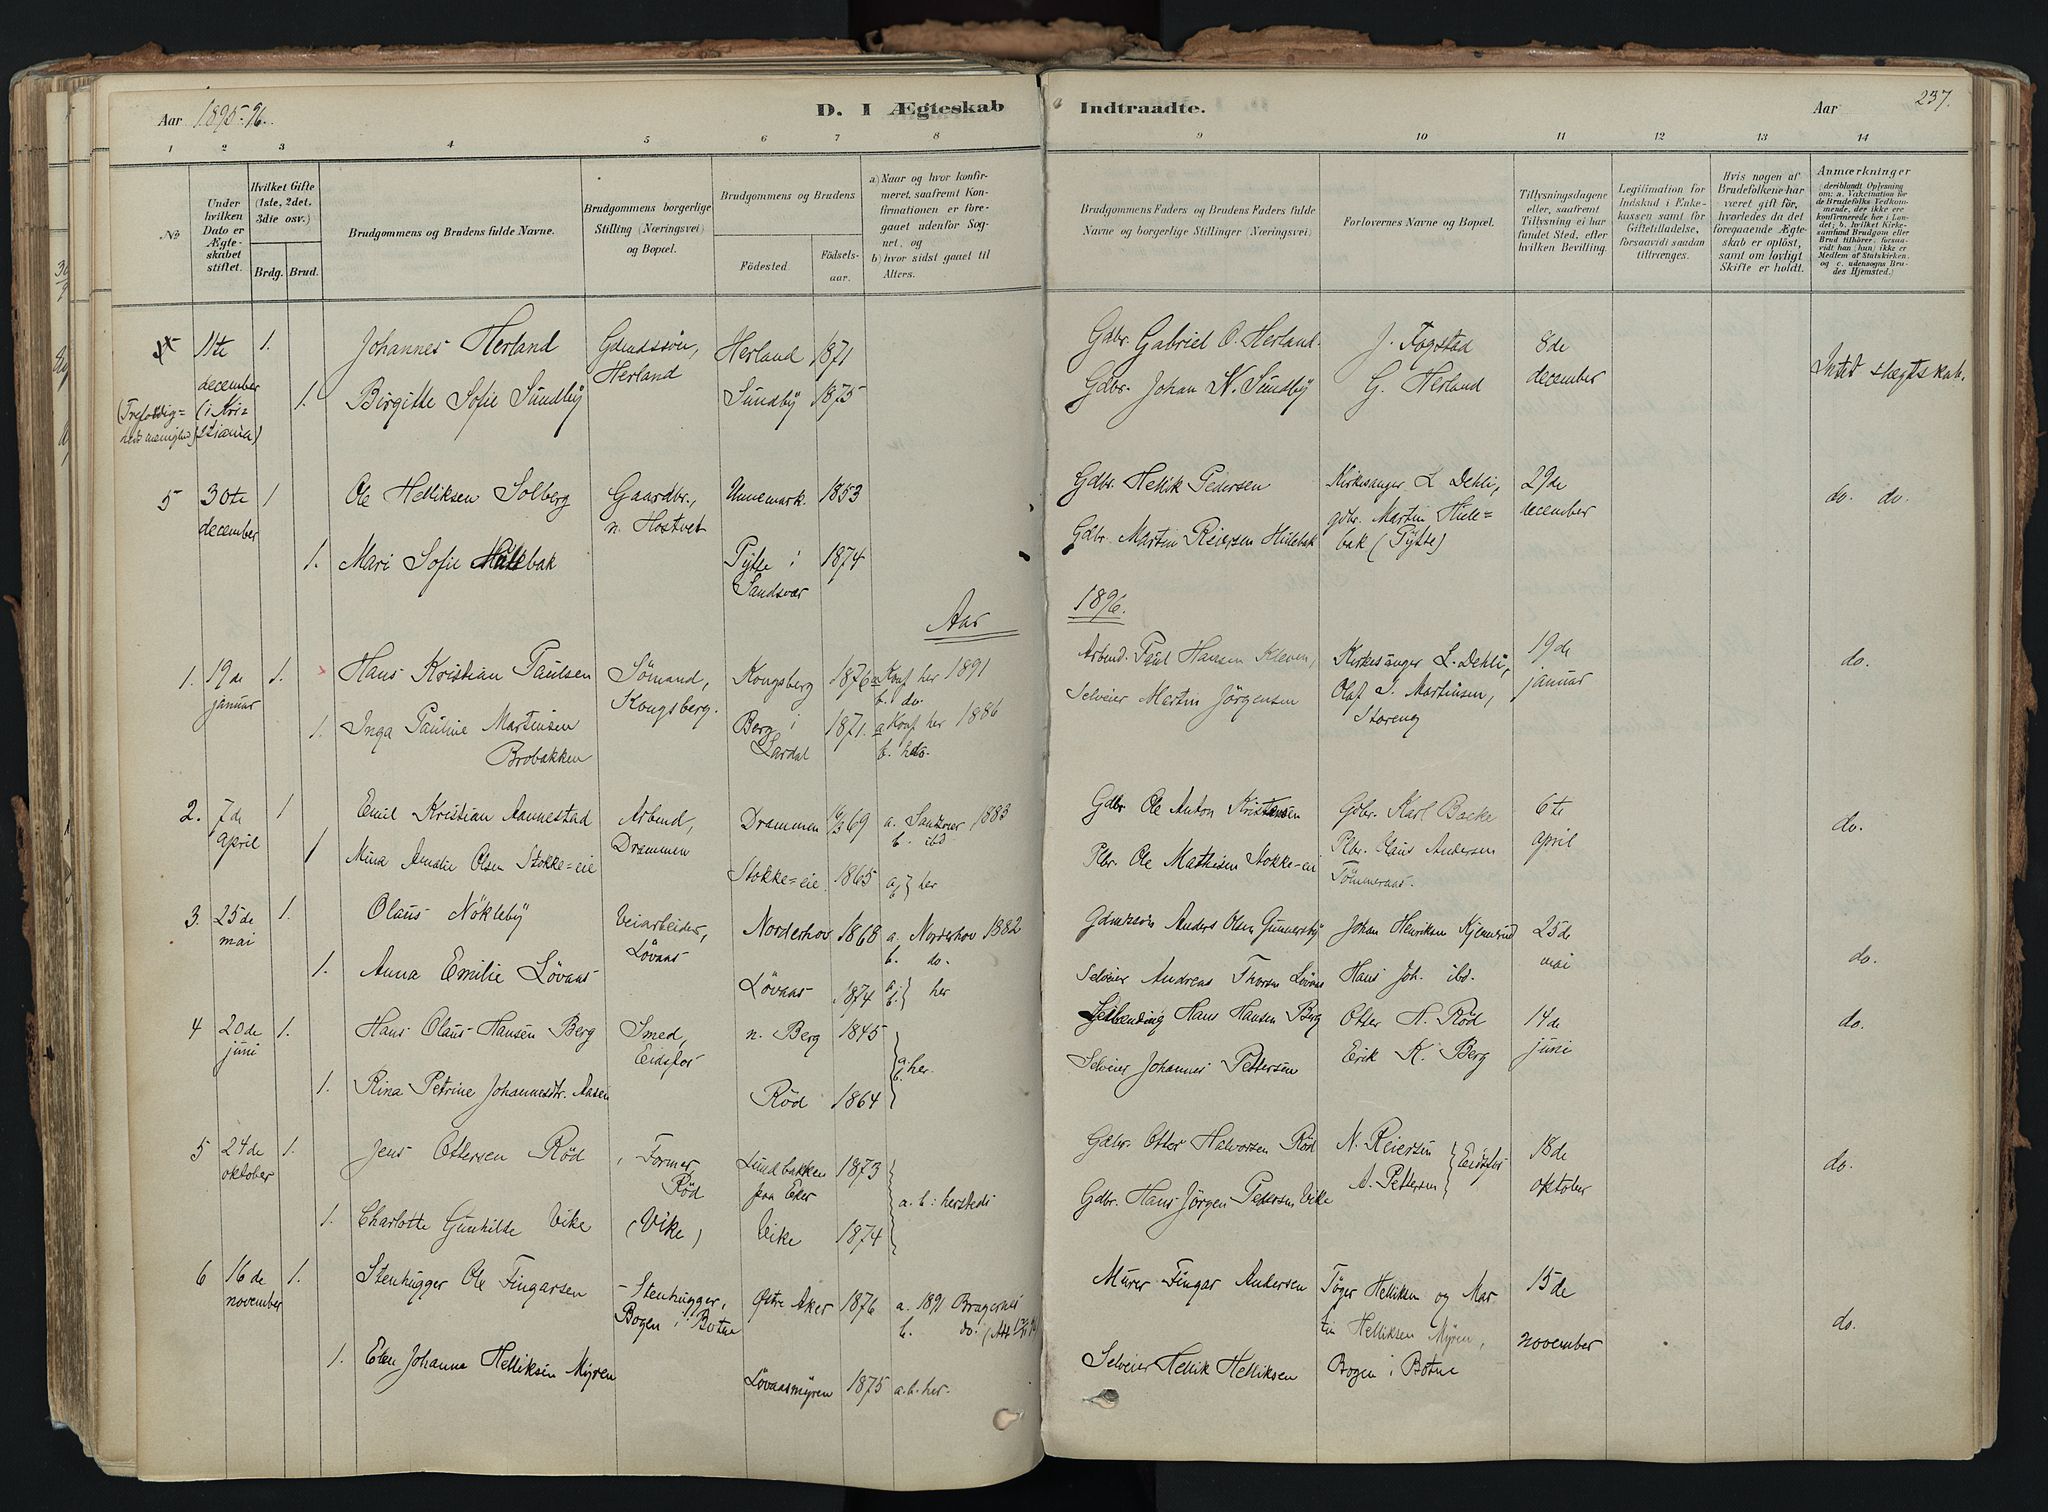 Aar 1895-96.
D. I Ægteskab
Indtraadte.
Aar
237.
1 2 3 4 5 6 7 8
9 10 11 12 13 14
No
Under hvilken Dato er Ægteskabet stiftet.
Hvilket Gifte (1ste, 2det, 3die osv.)
Brdg. Brud.
Brudgommens og Brudens fulde Navne.
Brudgommens borgerlige Stilling (Næringsvei) og Bopæl.
Brudgommens og Brudens
Fødested. Fødselsaar.
a) Naar og hvor konfirmeret, saafremt Konfirmationen er foregaaet udenfor Sognet, og
b) hvor sidst gaaet til Alters.
Brudgommens Faders og Brudens Faders fulde Navne og borgerlige Stillinger (Næringsvei)
Forlovernes Navne og Bopæl.
Tillysningsdagene eller, saafremt Tillysning ei har fundet Sted, efter hvilken Bevilling.
Legitimation for Indskud i Enkekassen samt for Giftetilladelse, forsaavidt saadan tiltrænges.
Hvis nogen af Brudefolkene har været gift før, hvorledes da det foregaaende Ægteskab er opløst, samt om lovligt Skifte er holdt.
Anmærkninger (deriblandt Oplysning om: a. Vakcination for de Brudefolks Vedkommende, der ikke ere konfirmerede her i Landet; b. hvilket Kirkesamfund Brudgom eller Brud tilhører, forsaavidt han (hun) ikke er Medlem af Statskirken, og c. udensogns Brudes Hjemsted.)
11te december (i Kristiania) 1. Johannes Herland Herland Herland 1871 Gdbr. Gabriel O. Herland. 8de december Intet slegtskab.
1. Birgitte Sofie Sundby Sundby 1875 Gdbr. Johan N. Sundby G. Herland
5 30te december 1 Ole Helliksen Solberg Gaardbr., n. Hostvet Unnemark. 1853 Gdbr. Hellik Pedersen Kirkesanger L. Dehli, 29de december do. do.
gdbr. Martin Hulebak (Tytte)
1. Mari Sofie Hulebak Tytte i Sandsvær 1874 Gdbr. Martin Reiersen Hulebak
Aar
1896.
1. 19de januar 1. Hans Kristian Paulsen Sömand, Kongsberg. Kongsberg 1876 a Konf her 1891 b. do. Arbmd. Paul Hansen Kleven, Kirkesanger L. Dehli, 19de januar do.
1. Inga Pauline Martinsen Brobakken Berg i Lardal 1871. a Konf her 1886 b. Selveier Martin Jörgensen Olaf J. Martinsen, Storeng
2. 7de april 1 Emil Kristian Aannestad Arbmd, Drammen Drammen 69 a. Sandsvær 1883 b. ibd Gdbr Ole Anton Kristensen Gdbr. Karl Backe 6te april do.
1 Mina Amalie Olsen Stokke=eie Stokke=eie 1865 a b } her Plbr. Ole Mathisen Stokke=eie Plbr. Claus Andersen Tömmeraas.
3. 25de mai 1. Olaus Nökleby Veiarbeider, Lövaas Norderhov 1868 a. Norderhov 1882 b. do. Anders Olsen Gunnersby Johan Henriksen 25de mai do.
1. Anna Emilie Lövaas Lövaas 1874 a. b. } her Selveier Andreas Thorsen Lövaas Hans Joh. ibd.
4 20de juni 1. Hans Olaus Hansen Berg Smed, Eidsfos n. Berg 1845 a. b. her. Hans Hansen Berg Otter H. Röd 14de juni do.
1. Rina Petrine Johannesdtr. Aasen Röd 1864 Selveier Johannes Pettersen Erik K. Berg
5 24de oktober 1. Jens Ottersen Röd Former, Röd Lundbakken paa Eker 1873 a. b: hersteds Gdbr. Otter Halvorsen Röd N. Reiersen } Eidsfos 18de oktober do.
1. Charlotte Gunhilde Vike (Vike) Vike 1874 Gdbr. Hans Jörgen Pedersen Vike A. Pettersen
6 16de november 1. Stenhugger Ole Fingarsen Stenhugger, Bogen i Botne Östre Aker 1876 a. 1891 Bragernes b. do. Murer Fingar Andersen Töger Helliksen og Martin Helliksen Myren, 15de november do.
1. Elen Johanna Helliksen Myren Lövaasmyren 1875 a. b. her. Selveier Hellik Helliksen Bogen i Botne